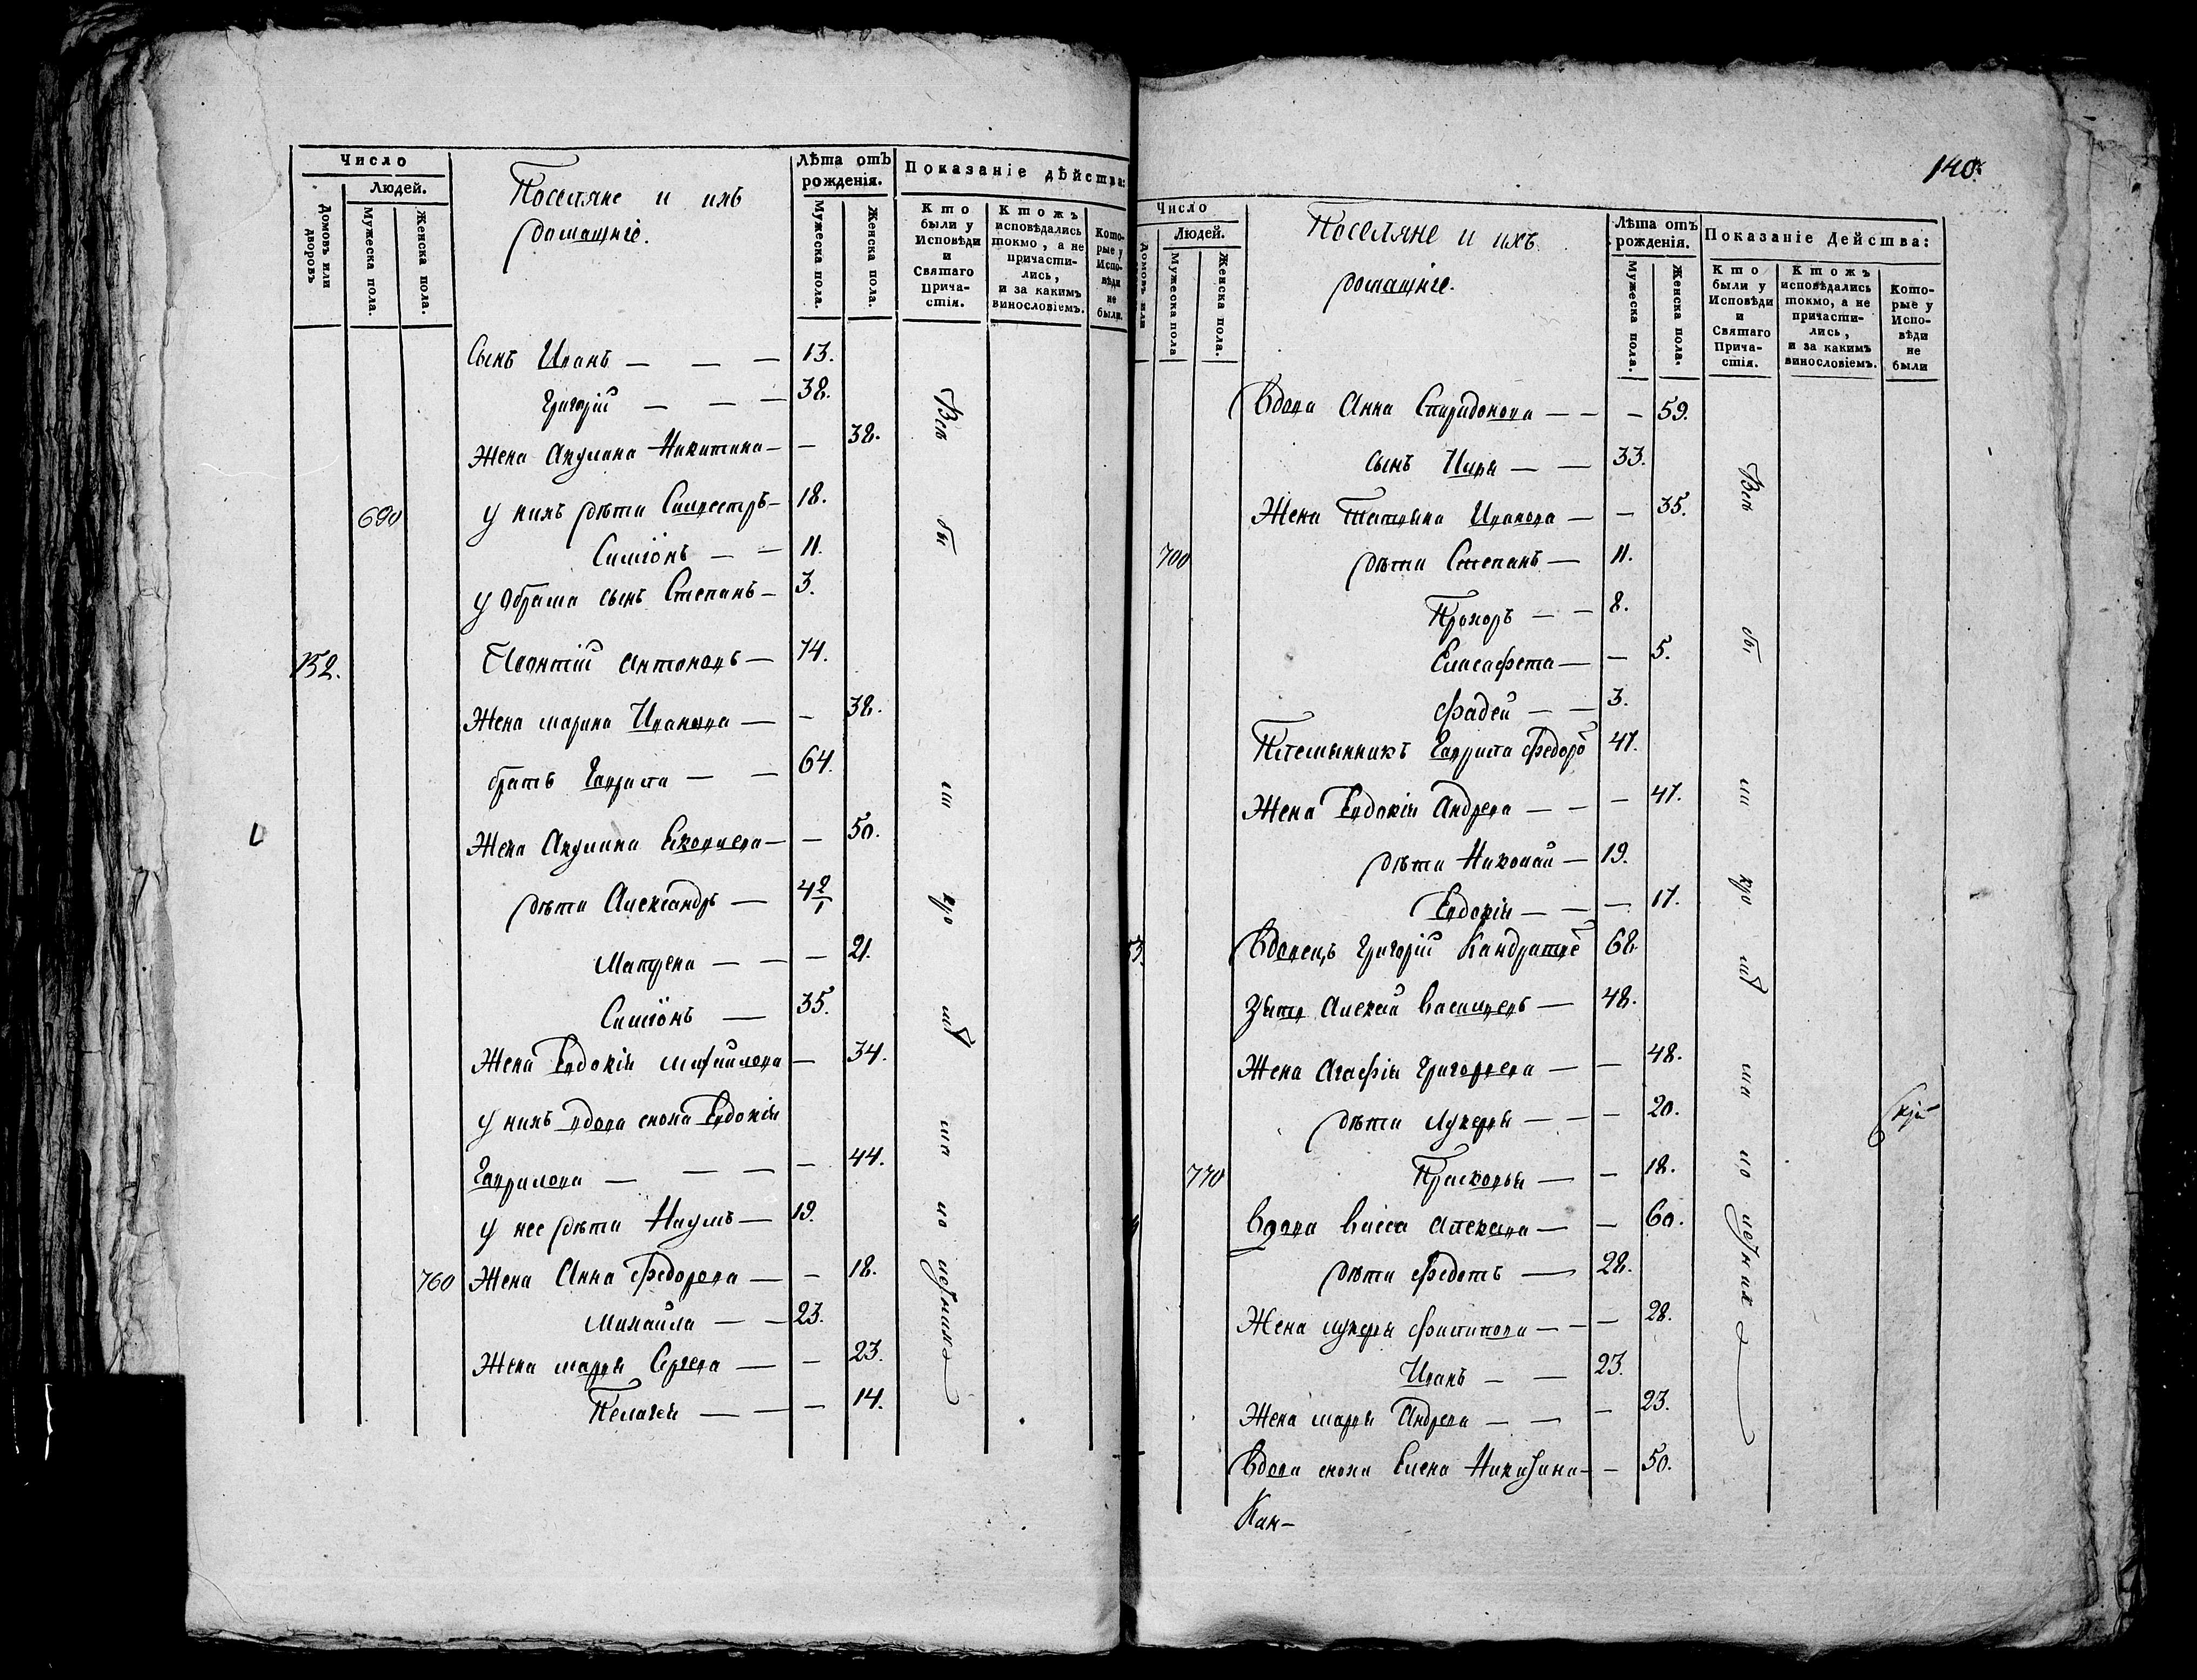 Число
Людей.
Домовъ или дворовъ
Мужеска пола.
Женска пола.
Поселяне и ихъ
домашніе.
Лѣта отъ рожденія.
Мужеска пола.
Женска пола.
Показаніе дѣйства:
Кто были у Исповѣди и Святаго Прича-стія.
Ктожъ исповѣдались токмо, а не причасти-лись, и за какимъ винословіемъ.
Кото-рые у Испо-вѣди не были.
Сынъ Иванъ — — — 13.
Григорій — — — 38.
Жена Акулина Никитина — — 38.
690 у нихъ дѣти Силвестръ — 18.
Симіонъ — — 11.
у Абрама сынъ Степанъ — 3.
152. Леонтій Антоновъ — 74.
Жена Марина Иванова — — 38.
братъ Гаврила — — 64.
Жена Акулина — — 50.
дѣти Александръ — 42
Матрена — — — 21.
Симіонъ — 35.
Жена Евдокія Михайлова — 34.
у нихъ вдова сноха Евдокія
Гаврилова — — — — 44.
у нее дѣти Наумъ — 19.
760 Жена Анна Федорова — — 18.
Михаила — — 23.
Жена Марья Сергева — — 23.
Пелагея — — — 14.
Всѣ
бы
ли
140.
Число
Людей.
Домовъ или
Мужеска пола
Женска пола.
Поселяне и ихъ
домашніе.
Лѣта отъ рожденія.
Мужеска пола.
Женска пола.
Показаніе Дѣйства:
Кто были у Исповѣди и Святаго Прича-стія.
Ктожъ исповѣдались токмо, а не причасти-лись, и за какимъ винословіемъ.
Кото-рые у Испо-вѣди не были
Вдова Анна Спиридонова — — — 59.
сынъ Илья — — 33.
Жена Татьяна Иванова — — 35.
700 дѣти Степанъ — 11.
Прохоръ — — 8.
Елисафета — — 5.
Фадей — — 3.
Племянникъ Гаврила Федоро 47.
Жена Евдокія Андрева — — — 47.
дѣти Николай — 19.
Евдокія — — — 17.
53. Вдовецъ Григорій Кандратье 68.
Зять Алексѣй Васильевъ — 48.
Жена Агафія Григорьева — — 48.
дѣти Лукерья — — — 20.
770 Прасковья — — 18.
Вдова Васса Алексева — — 60.
дѣти Федотъ — 28.
Жена Лукерья Филипова — — — 28.
Иванъ — — 23.
Жена Марья Андрева — — — 23.
Вдова сноха Елена — — 50.
Кан-
Всѣ
бы
ли